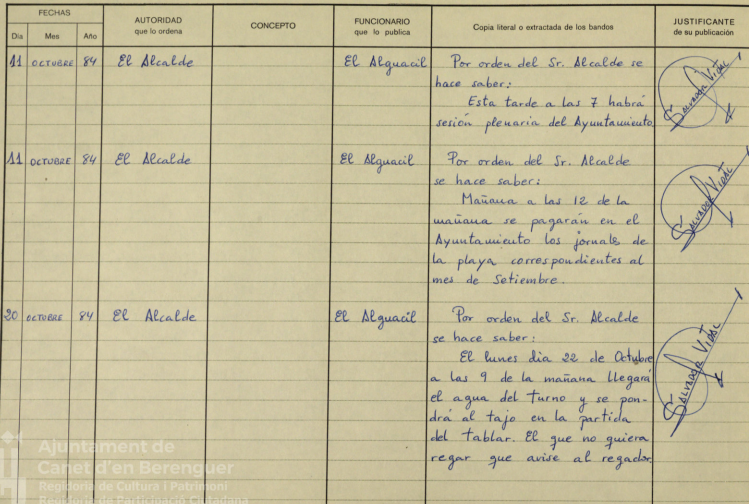 FECHAS
Día Mes Año
AUTORIDAD
que lo ordena
CONCEPTO
FUNCIONARIO
que lo publica
Copia literal o extractada de los bandos
JUSTIFICANTE
de su publicación
11 OCTUBRE 84 El Alcalde El Alguacil Por orden del Sr. Alcalde se
hace saber:
Esta tarde a las 7 habrá
sesión plenaria del Ayuntamiento
Salvador Vidal
11 OCTUBRE 84 El Alcalde El Alguacil Por orden del Sr. Alcalde
se hace saber:
Mañana a las 12 de la
mañana se pagarán en el
Ayuntamiento los jornales de
la playa correspondientes al
mes de Setiembre.
Salvador Vidal
20 OCTUBRE 84 El Alcalde El Alguacil Por orden del Sr. Alcalde
se hace saber:
El lunes dia 22 de Octubre
a las 9 de la mañana llegará
el agua del turno y se pon-
drá al tajo en la partida
del tablar. El que no quiera
regar que avise al regador.
Salvador Vidal
Ajuntament de
Canet d'en Berenguer
Regidoria de Cultura i Patrimoni
Regidoria de Participació Ciutadana